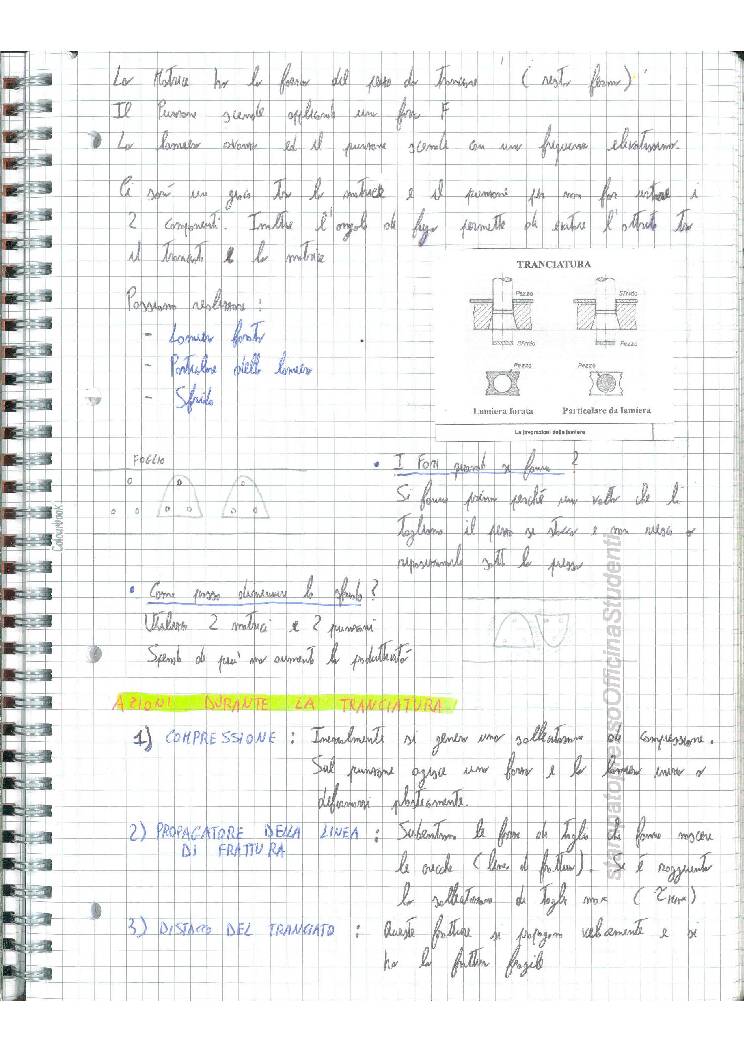 La Matrice ha la forma del pezzo da tranciare (resta ferma)
Il Punzone scende applicando una forza F
La lamiera avanza ed il punzone scende con una frequenza elevatissima.
Ci sarà un gioco tra la matrice e il punzone per non far usurare i
2 componenti. Inoltre l'angolo di fuga permette di evitare l'attrito tra
il tranciato e la matrice
TRANCIATURA
Pezzo
Sfrido
Sfrido
Pezzo
Pezzo
Pezzo
Lamiera forata
Particolare da lamiera
Le lavorazioni delle lamiere
Possiamo realizzare :
- Lamiera forata
- Particolare della lamiera
- Sfrido
FOGLIO
• I Fori quando si fanno ?
Si fanno prima perché una volta che li
tagliamo il pezzo si stacca e non riesco a
riposizionarlo sotto la pressa
• Come posso diminuire lo sfrido ?
Utilizzo 2 matrici e 2 punzoni
Spendo di più ma aumento la produttività
AZIONI DURANTE LA TRANCIATURA
1) COMPRESSIONE : Inizialmente si genera una sollecitazione di compressione.
Sul punzone agisce una forza e la lamiera inizia a
deformarsi plasticamente.
2) PROPAGATORE DELLA LINEA DI FRATTURA : Subentrano le forze di taglio che fanno nascere
le cricche (linea di frattura). Si è raggiunta
la sollecitazione di taglio max (τmax)
3) DISTACCO DEL TRANCIATO : Queste fratture si propagano velocemente e si
ha la frattura fragile
Colourbook
stampato presso OfficinaStudenti